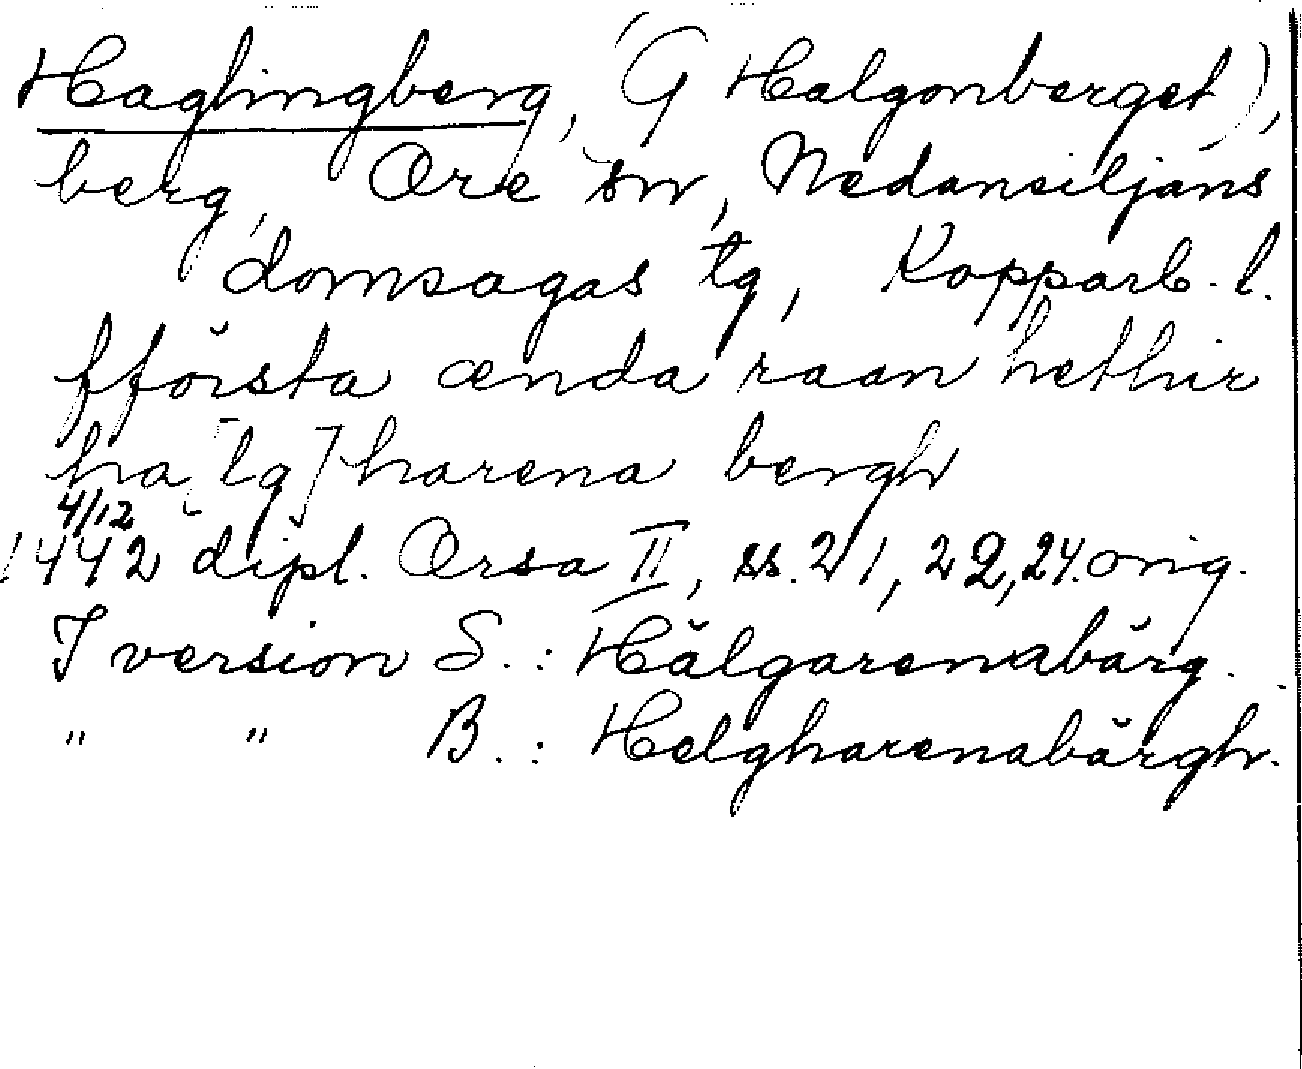 Haglingberg, (G Halgonberget),
berg, Ore sn, Nedansiljans
domsagas tg, Kopparb. l.
fförsta ænda raan hethir
ha[lg]harena bergh
4/12
1442 dipl. Orsa II, ss. 21, 22, 24. orig.
I version S.: Hälgarenabärg.
" " B.: Helgharenabärgh.